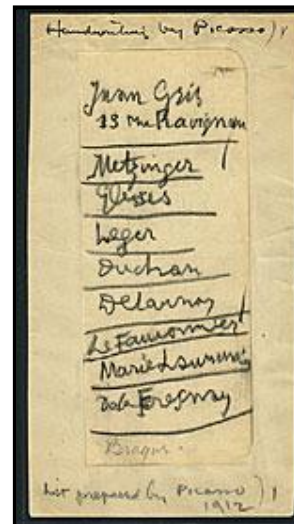 Handwriting by Picasso)
Juan Gris
13 rue Ravignan
Metzinger
Gleizes
Leger
Duchan
Delaunay
Le Fauconnier
Marie Laurencin
De la Fresnay
Braque
List prepared by Picasso)
1912